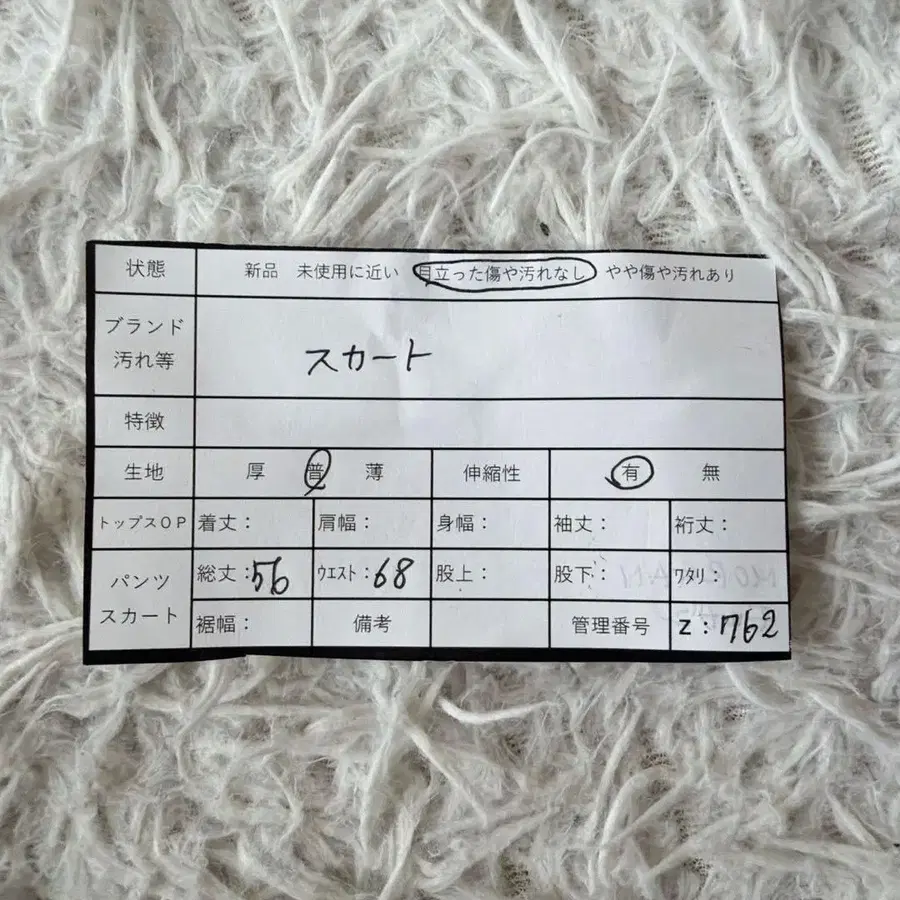 状態 新品 未使用に近い 目立った傷や汚れなし やや傷や汚れあり
ブランド
汚れ等 スカート
特徴
生地 厚 普 薄 伸縮性 有 無
トップスOP 着丈： 肩幅： 身幅： 袖丈： 裄丈：
パンツ
スカート 総丈：56 ウエスト：68 股上： 股下： ワタリ：
裾幅： 備考 管理番号 Z：762